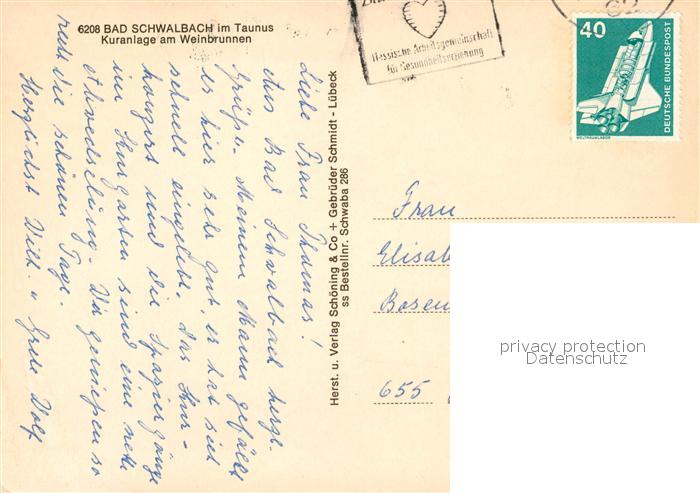 6208 BAD SCHWALBACH im Taunus
Kuranlage am Weinbrunnen
Liebe Frau Thomas!
Aus Bad Schwalbach herzl.
Grüße. Meinem Mann gefällt
es hier sehr gut, er hat sich
schnell eingelebt. Das Kur-
konzert und die Spaziergänge
im Kurgarten sind eine nette
Abwechslung. Wir genießen so
recht die schönen Tage.
Herzlichst Wilh. u. Grete Wolf
Herst. u. Verlag Schöning & Co + Gebrüder Schmidt - Lübeck
ss Bestellnr. Schwaba 286
Hessische Arbeitsgemeinschaft
für Gesundheitserziehung
62
40
DEUTSCHE BUNDESPOST
WELTRAUMLABOR
Frau
Elisab
Bosen
655
privacy protection
Datenschutz